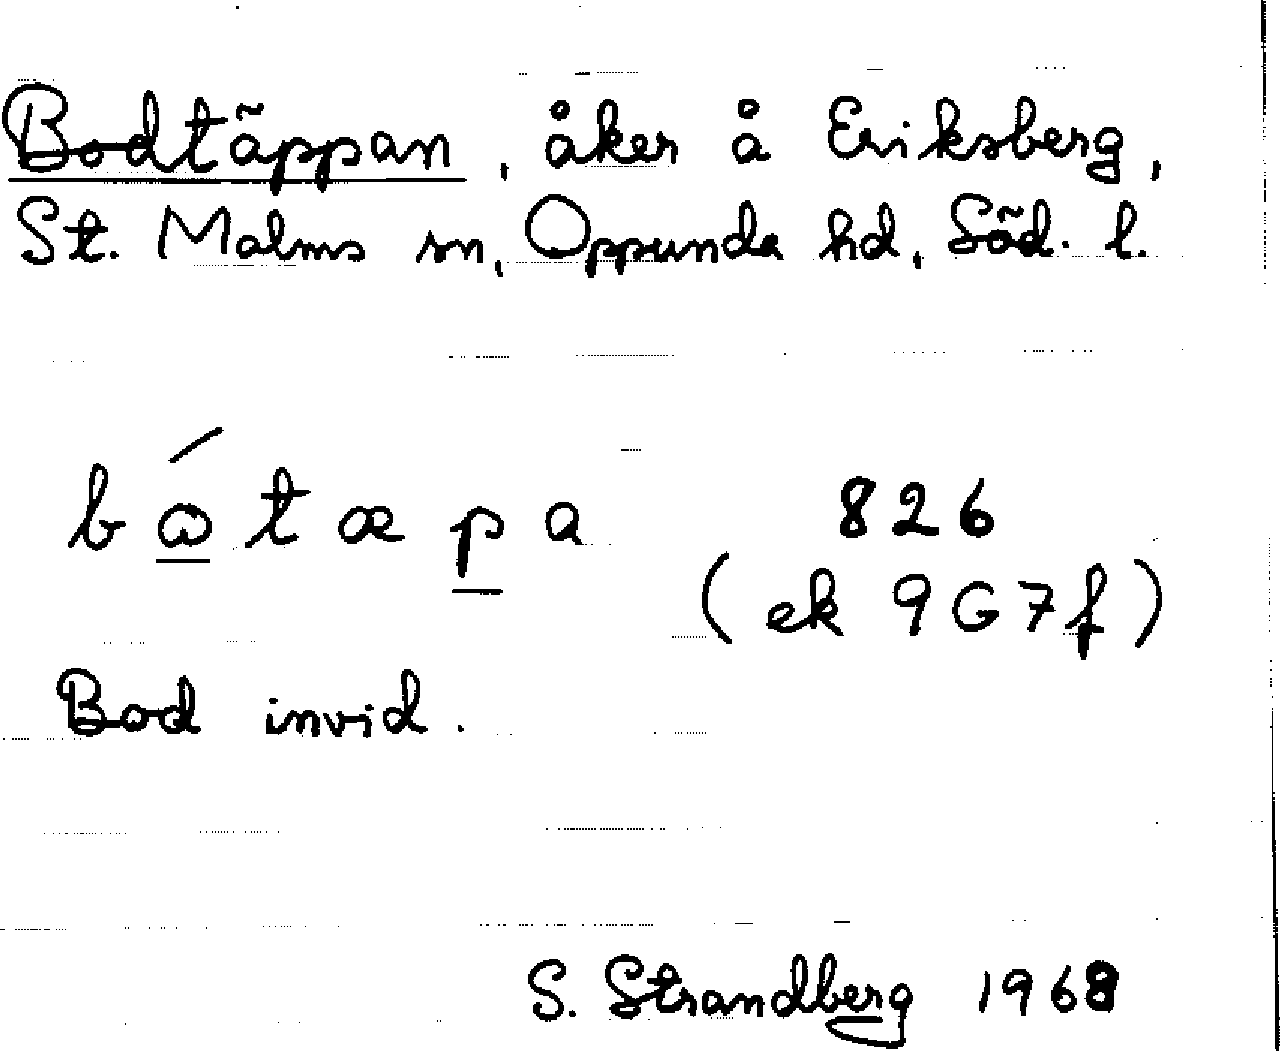 Bodtäppan, åker å Eriksberg,
St. Malms sn, Oppunda hd, Söd. l.
bώtæpa 826
(ek 9G7f)
Bod invid.
S. Strandberg 1968